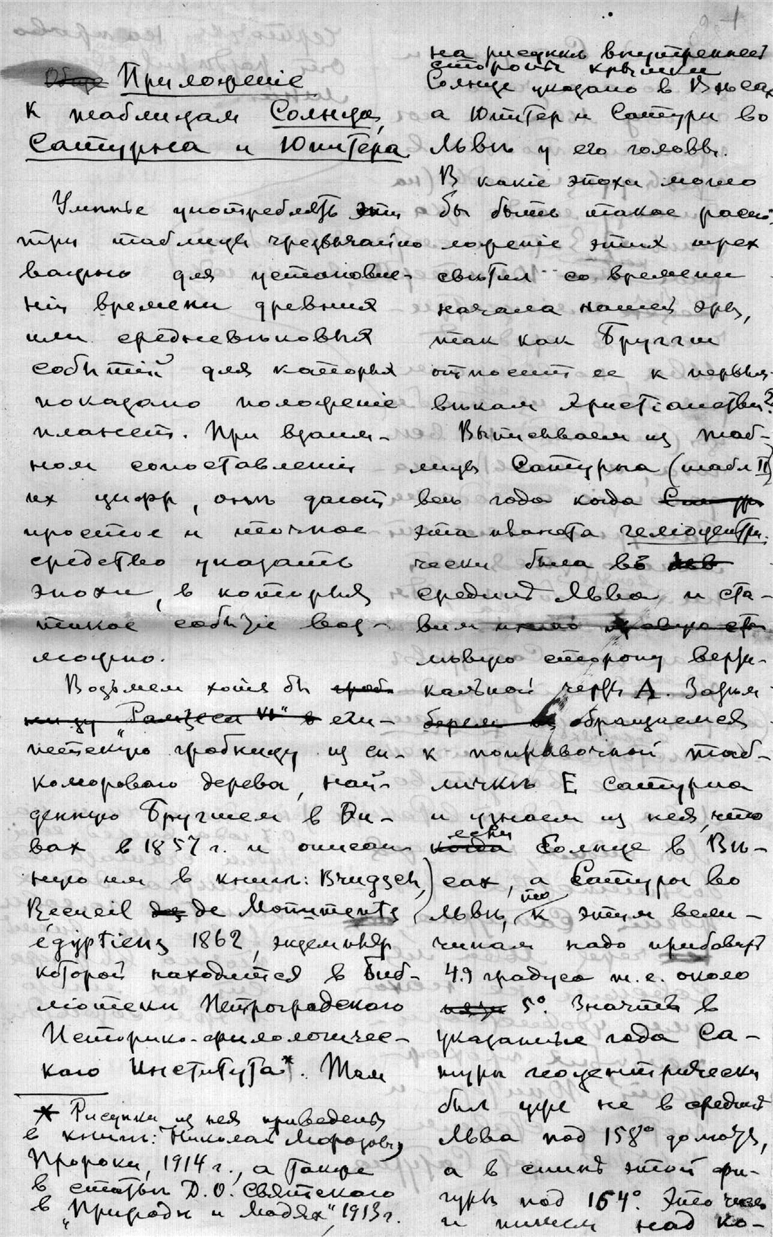 Приложеніе
к таблицам Солнца,
Сатурна и Юпитера
Умѣнье употреблять эти
три таблицы чрезвычайно
важно для установле-
нія времени древних
или средневѣковых
событій для которых
показано положеніе
планет. При взаим-
ном сопоставленіи
их цифр, онѣ дают
простое и точное
средство указать
эпохи, в которыя
такое событіе воз-
можно.
Возьмем хотя бы
"Рамзеса VI" еги-
петскую гробницу из си-
комороваго дерева, най-
денную Бругшем в Ѳи-
вах в 1857 г. и описан-
ную им в книгѣ: Brugsch,
Recueil de Monuments
égyptiens 1862, экземпляр
которой находится в Биб-
лиотеки Петроградского
Историко-филологичес-
каго Института*. Там
* Рисунки из нея приведены
в книгѣ: Николай Морозов,
Пророки, 1914 г., а также
в статьи Д. О. Святского
в "Природа и Люди", 1913 г.
на рисункѣ внутренней
стороны крышки
Солнце указано в Вѣсах
а Юпитер и Сатурн во
Львѣ у его головы.
В какіе эпохи могло
бы быть такое распо-
ложеніе этих трех
свѣтил со времени
начала нашей эры,
так как Бругш
относит ее к первым
вѣкам Христіанства?
Выписываем из таб-
лицы Сатурна (табл II)
всѣ года когда
эта планета геліоцентри-
чески была въ
срединѣ Льва, и ста-
вим
лѣвую сторону верти-
кальной черты А. Затѣм
обращаемся
к поправочной таб-
личкѣ Е Сатурна
и узнаем из нея, что
если Солнце в Вѣ-
сах, а Сатурн во
Львѣ, то к этим вели-
чинам надо прибавить
4.9 градуса т.е. около
5°. Значит в
указанные года Са-
турн геоцентрически
был уже не в срединѣ
Льва под 158° долготы,
а в спинѣ этой фи-
гуры под 164°. Это число
и пишем над ко-